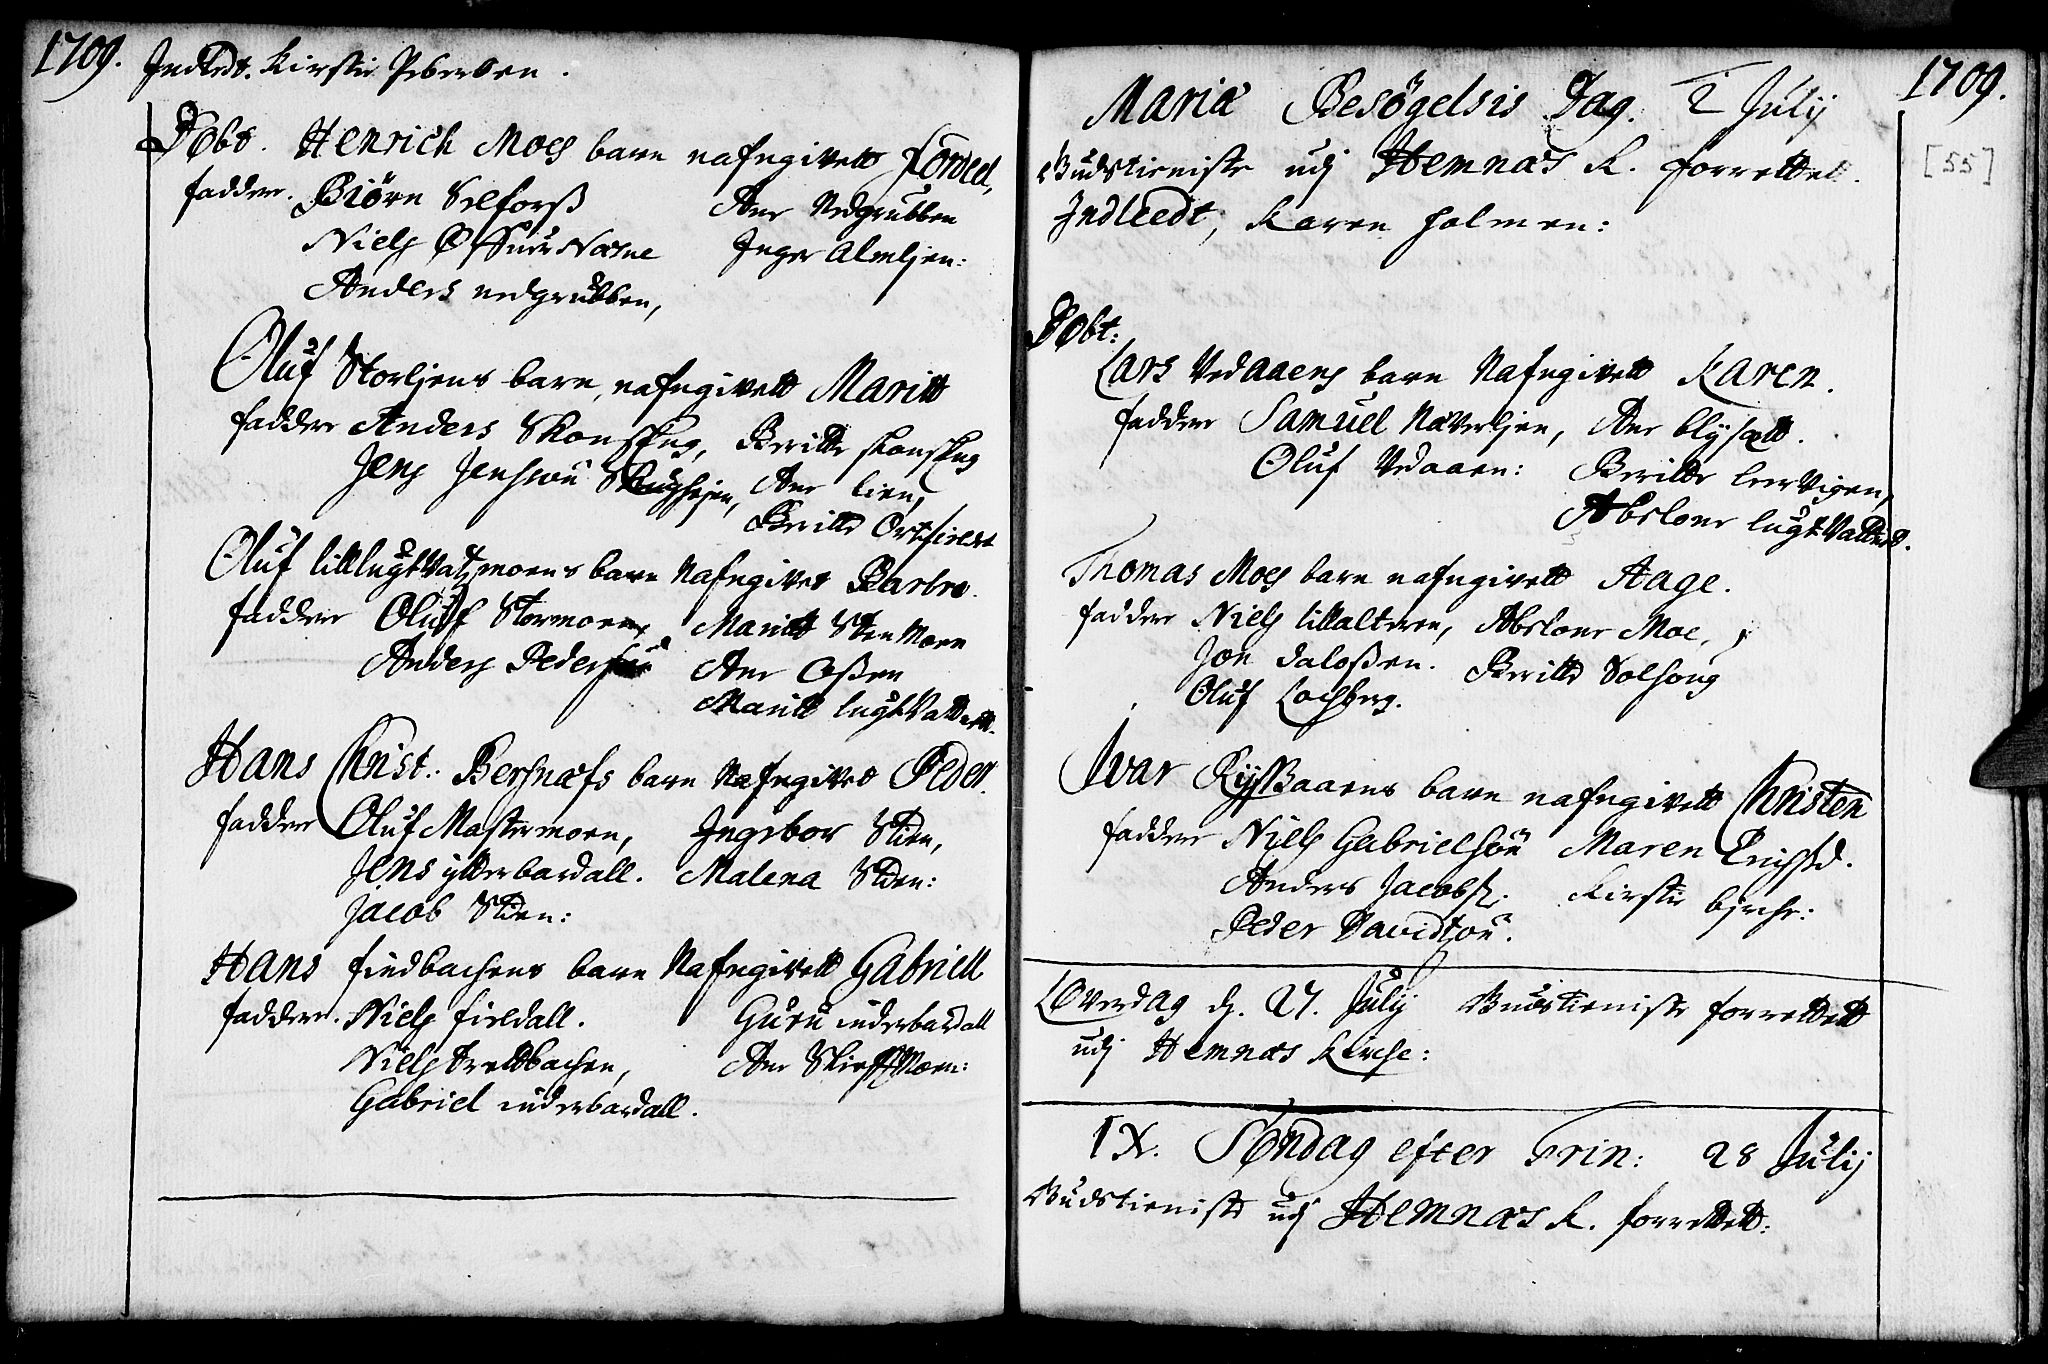 1709.
Indledt. Kirstie Pedersen.
Døbt. Henrich Moes barn nafngivett
faddere. Biörn Selforß Ane Nedgrubben
Niels Inger Almljen:
Anders nedgrubben,
Oluf Storljens barn, nafngivett Maritt
faddere Anders Skonseng, Beritte skonseng
Jens Jenssøn Ane Lien,
Beritte Ortfieldt
Oluf lillugtvatzmoens barn Nafngivet Barbro.
faddere Oluf Stormoen, Maritt Stenmoen
Anders Pedersøn Ane Oßen
Maritt lugtvattnett.
Hans Christ: Bersnæfs barn Nafngivet Peder.
faddere Oluf Mastermoen, Ingebor Stien,
Jens ytterbardall. Malena Stien:
Jacob Stien:
Hans findbachens barn Nafngivett Gabriell
faddere. Niels fieldall. Guru inderbardall
Niels bachen, Ane Moen:
Gabriel inderbardall.
1709.
[55]
Mariæ Besögelsis Dag. 2 Julij
Gudstieniste udj Hemnæs K. forrettet.
Indleedt, Karen holmen:
Døbt:
Lars Vedaaens barn Nafngivett Karen.
faddere Samuel Næverljen, Ane blysett.
Oluf Vedaaen: Beritte leervigen,
Abelone lugtvattnet.
Thomas Moes barn nafngivett Aage.
faddere Niels lillalteren, Abelone Moe,
Jon daloßen. Beritte Solhoug
Oluf Lochberg.
Ivar Ryssaaens barn nafngivett Christen
faddere Niels Gabrielsön Maren Erichsd.
Anders Jacobs. Kirstie bjerche:
Peder Davidsön.
Løverdag d. 27. Julij Gudstieniste forrettett
udj Hemnæs Kirche:
IX. Søndag efter Trin: 28 Julij
Gudstieniste udj Hemnæs K. forrettett: